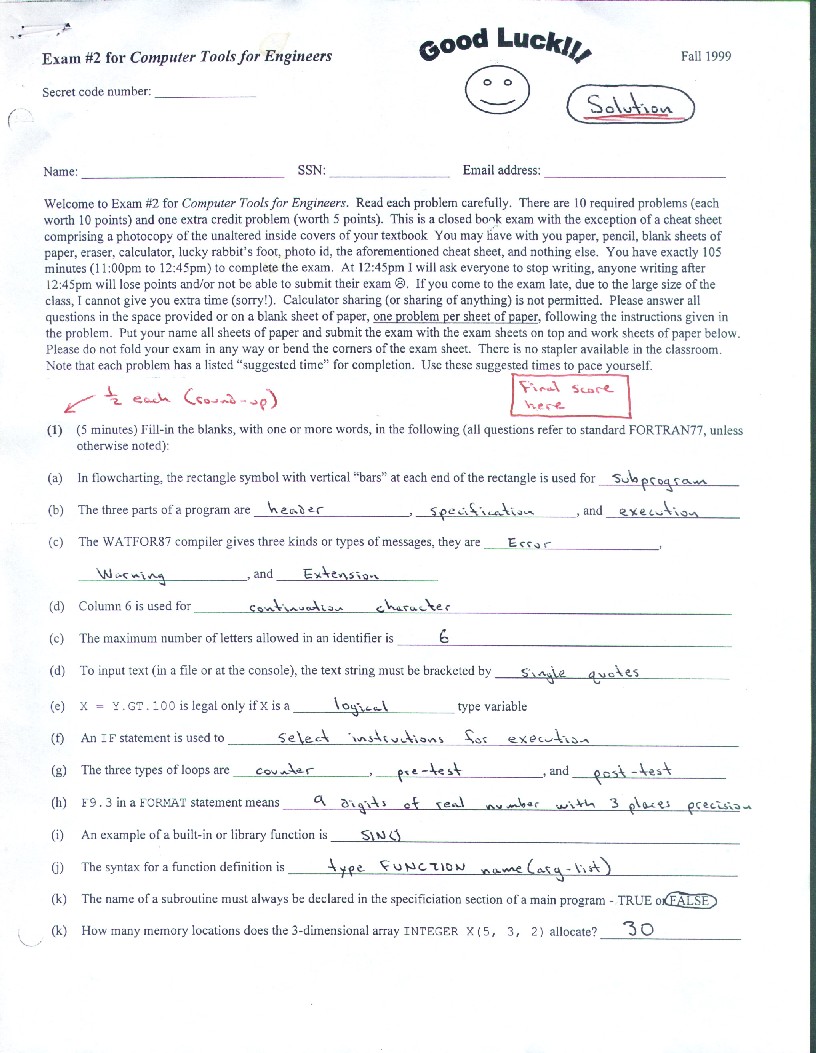 Good Luck!!!
Exam #2 for Computer Tools for Engineers
Fall 1999
Secret code number: ____________
Solution
Name: ____________ SSN: ____________ Email address: ____________
Welcome to Exam #2 for Computer Tools for Engineers. Read each problem carefully. There are 10 required problems (each
worth 10 points) and one extra credit problem (worth 5 points). This is a closed book exam with the exception of a cheat sheet
comprising a photocopy of the unaltered inside covers of your textbook You may have with you paper, pencil, blank sheets of
paper, eraser, calculator, lucky rabbit's foot, photo id, the aforementioned cheat sheet, and nothing else. You have exactly 105
minutes (11:00pm to 12:45pm) to complete the exam. At 12:45pm I will ask everyone to stop writing, anyone writing after
12:45pm will lose points and/or not be able to submit their exam ☹. If you come to the exam late, due to the large size of the
class, I cannot give you extra time (sorry!). Calculator sharing (or sharing of anything) is not permitted. Please answer all
questions in the space provided or on a blank sheet of paper, one problem per sheet of paper, following the instructions given in
the problem. Put your name all sheets of paper and submit the exam with the exam sheets on top and work sheets of paper below.
Please do not fold your exam in any way or bend the corners of the exam sheet. There is no stapler available in the classroom.
Note that each problem has a listed "suggested time" for completion. Use these suggested times to pace yourself.
½ each (round-up)
Final score
here
(1) (5 minutes) Fill-in the blanks, with one or more words, in the following (all questions refer to standard FORTRAN77, unless
otherwise noted):
(a) In flowcharting, the rectangle symbol with vertical "bars" at each end of the rectangle is used for subprogram
(b) The three parts of a program are header, specification, and execution
(c) The WATFOR87 compiler gives three kinds or types of messages, they are Error,
Warning, and Extension
(d) Column 6 is used for continuation character
(c) The maximum number of letters allowed in an identifier is 6
(d) To input text (in a file or at the console), the text string must be bracketed by single quotes
(e) X = Y.GT.100 is legal only if X is a logical type variable
(f) An IF statement is used to select instructions for execution
(g) The three types of loops are counter, pre-test, and post-test
(h) F9.3 in a FORMAT statement means 9 digits of real number with 3 places precision
(i) An example of a built-in or library function is SIN()
(j) The syntax for a function definition is type FUNCTION name(arg-list)
(k) The name of a subroutine must always be declared in the specificiation section of a main program - TRUE or FALSE
(k) How many memory locations does the 3-dimensional array INTEGER X(5, 3, 2) allocate? 30